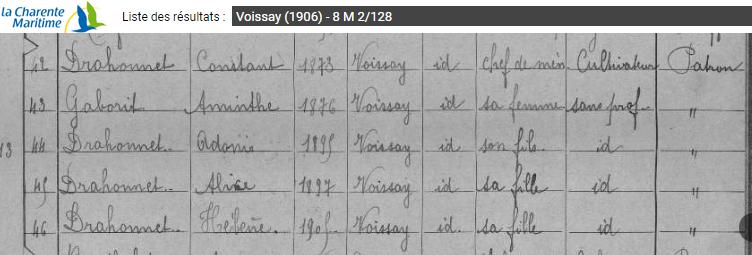 la Charente
Maritime
Liste des résultats : Voissay (1906) - 8 M 2/128
42 Drahonnet Constant 1873 Voissay id chef de mén. Cultivateur Patron
43 Gaborit Aminthe 1876 Voissay id sa femme sans prof. "
13 44 Drahonnet Adonis 1895 Voissay id son fils id "
45 Drahonnet Alice 1897 Voissay id sa fille id "
46 Drahonnet Hélène 1905 Voissay id. sa fille id "